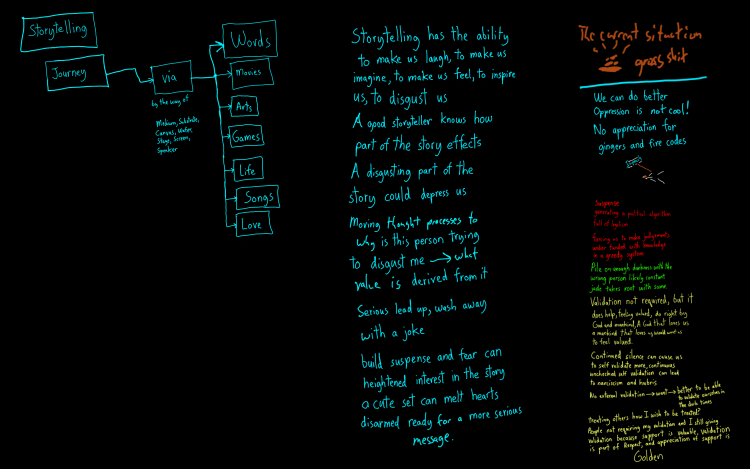 Storytelling
Journey
via
by the way of
Medium, Substrate,
Canvas, Water,
Stage, Screen,
Speaker
Words
Movies
Arts
Games
Life
Songs
Love
Storytelling has the ability
to make us laugh, to make us
imagine, to make us feel, to inspire
us, to disgust us
A good storyteller knows how
part of the story effects
A disgusting part of the
story could depress us
Moving thought processes to
why is this person trying
to disgust me → what
value is derived from it
Serious lead up, wash away
with a joke
build suspense and fear can
heightened interest in the story
a cute set can melt hearts
disarmed ready for a more serious
message.
The current situation
gross shit
We can do better
Oppression is not cool!
No appreciation for
gingers and fire codes
Suspense
generating a political algorithm
full of
forcing us to make judgements
under funded with knowledge
in a greedy system
Pile on enough darkness with the
wrong person likely constant
jade takes root with some
Validation not required, but it
does help, feeling valued, do right by
God and mankind, A God that loves us
a mankind that loves us would want us
to feel valued.
Continued silence can cause us
to self validate more, continuous
unchecked self validation can lead
to narcissism and hubris
No external validation → want → better to be able
to validate ourselves in
the dark times
Treating others how I wish to be treated?
People not requiring my validation and I still giving
validation because support is valuable, Validation
is part of Respect, and appreciation of support is
Golden